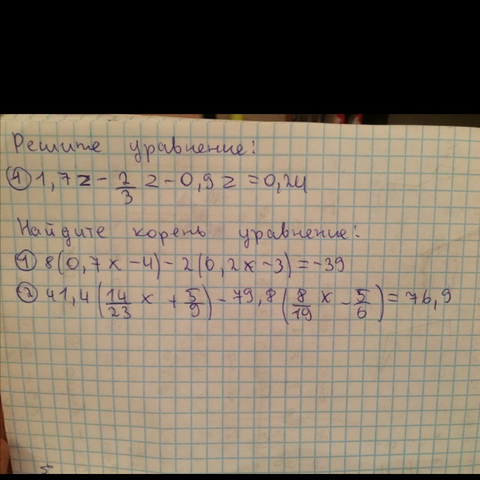 Решите уравнение:
④ 1,7z - 2/3 z - 0,9z = 0,24
Найдите корень уравнение:
① 8(0,7x - 4) - 2(0,2x - 3) = -39
② 41,4(14/23 x + 5/9) - 79,8(8/19 x - 5/6) = 76,9
5